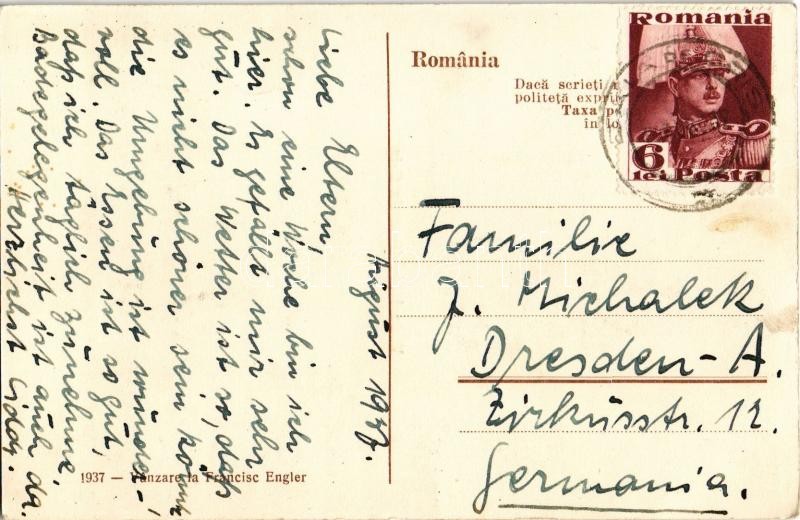 August 1937.
Liebe Eltern,
schon eine Woche bin ich
hier. Es gefällt mir sehr
gut. Das Wetter ist so, daß
es nicht schöner sein könnte
die Umgebung ist wunder-
voll. Das Essen ist so gut,
daß ich täglich zunehme.
Badegelegenheit ist auch da.
Herzlichst
1937 — Vânzare la Francisc Engler
România
Dacă scrieți
politeță
Taxa
în lo
Romania
6
lei Posta
Familie
J. Michalek
Dresden-A.
Zirkusstr. 12.
Germania.